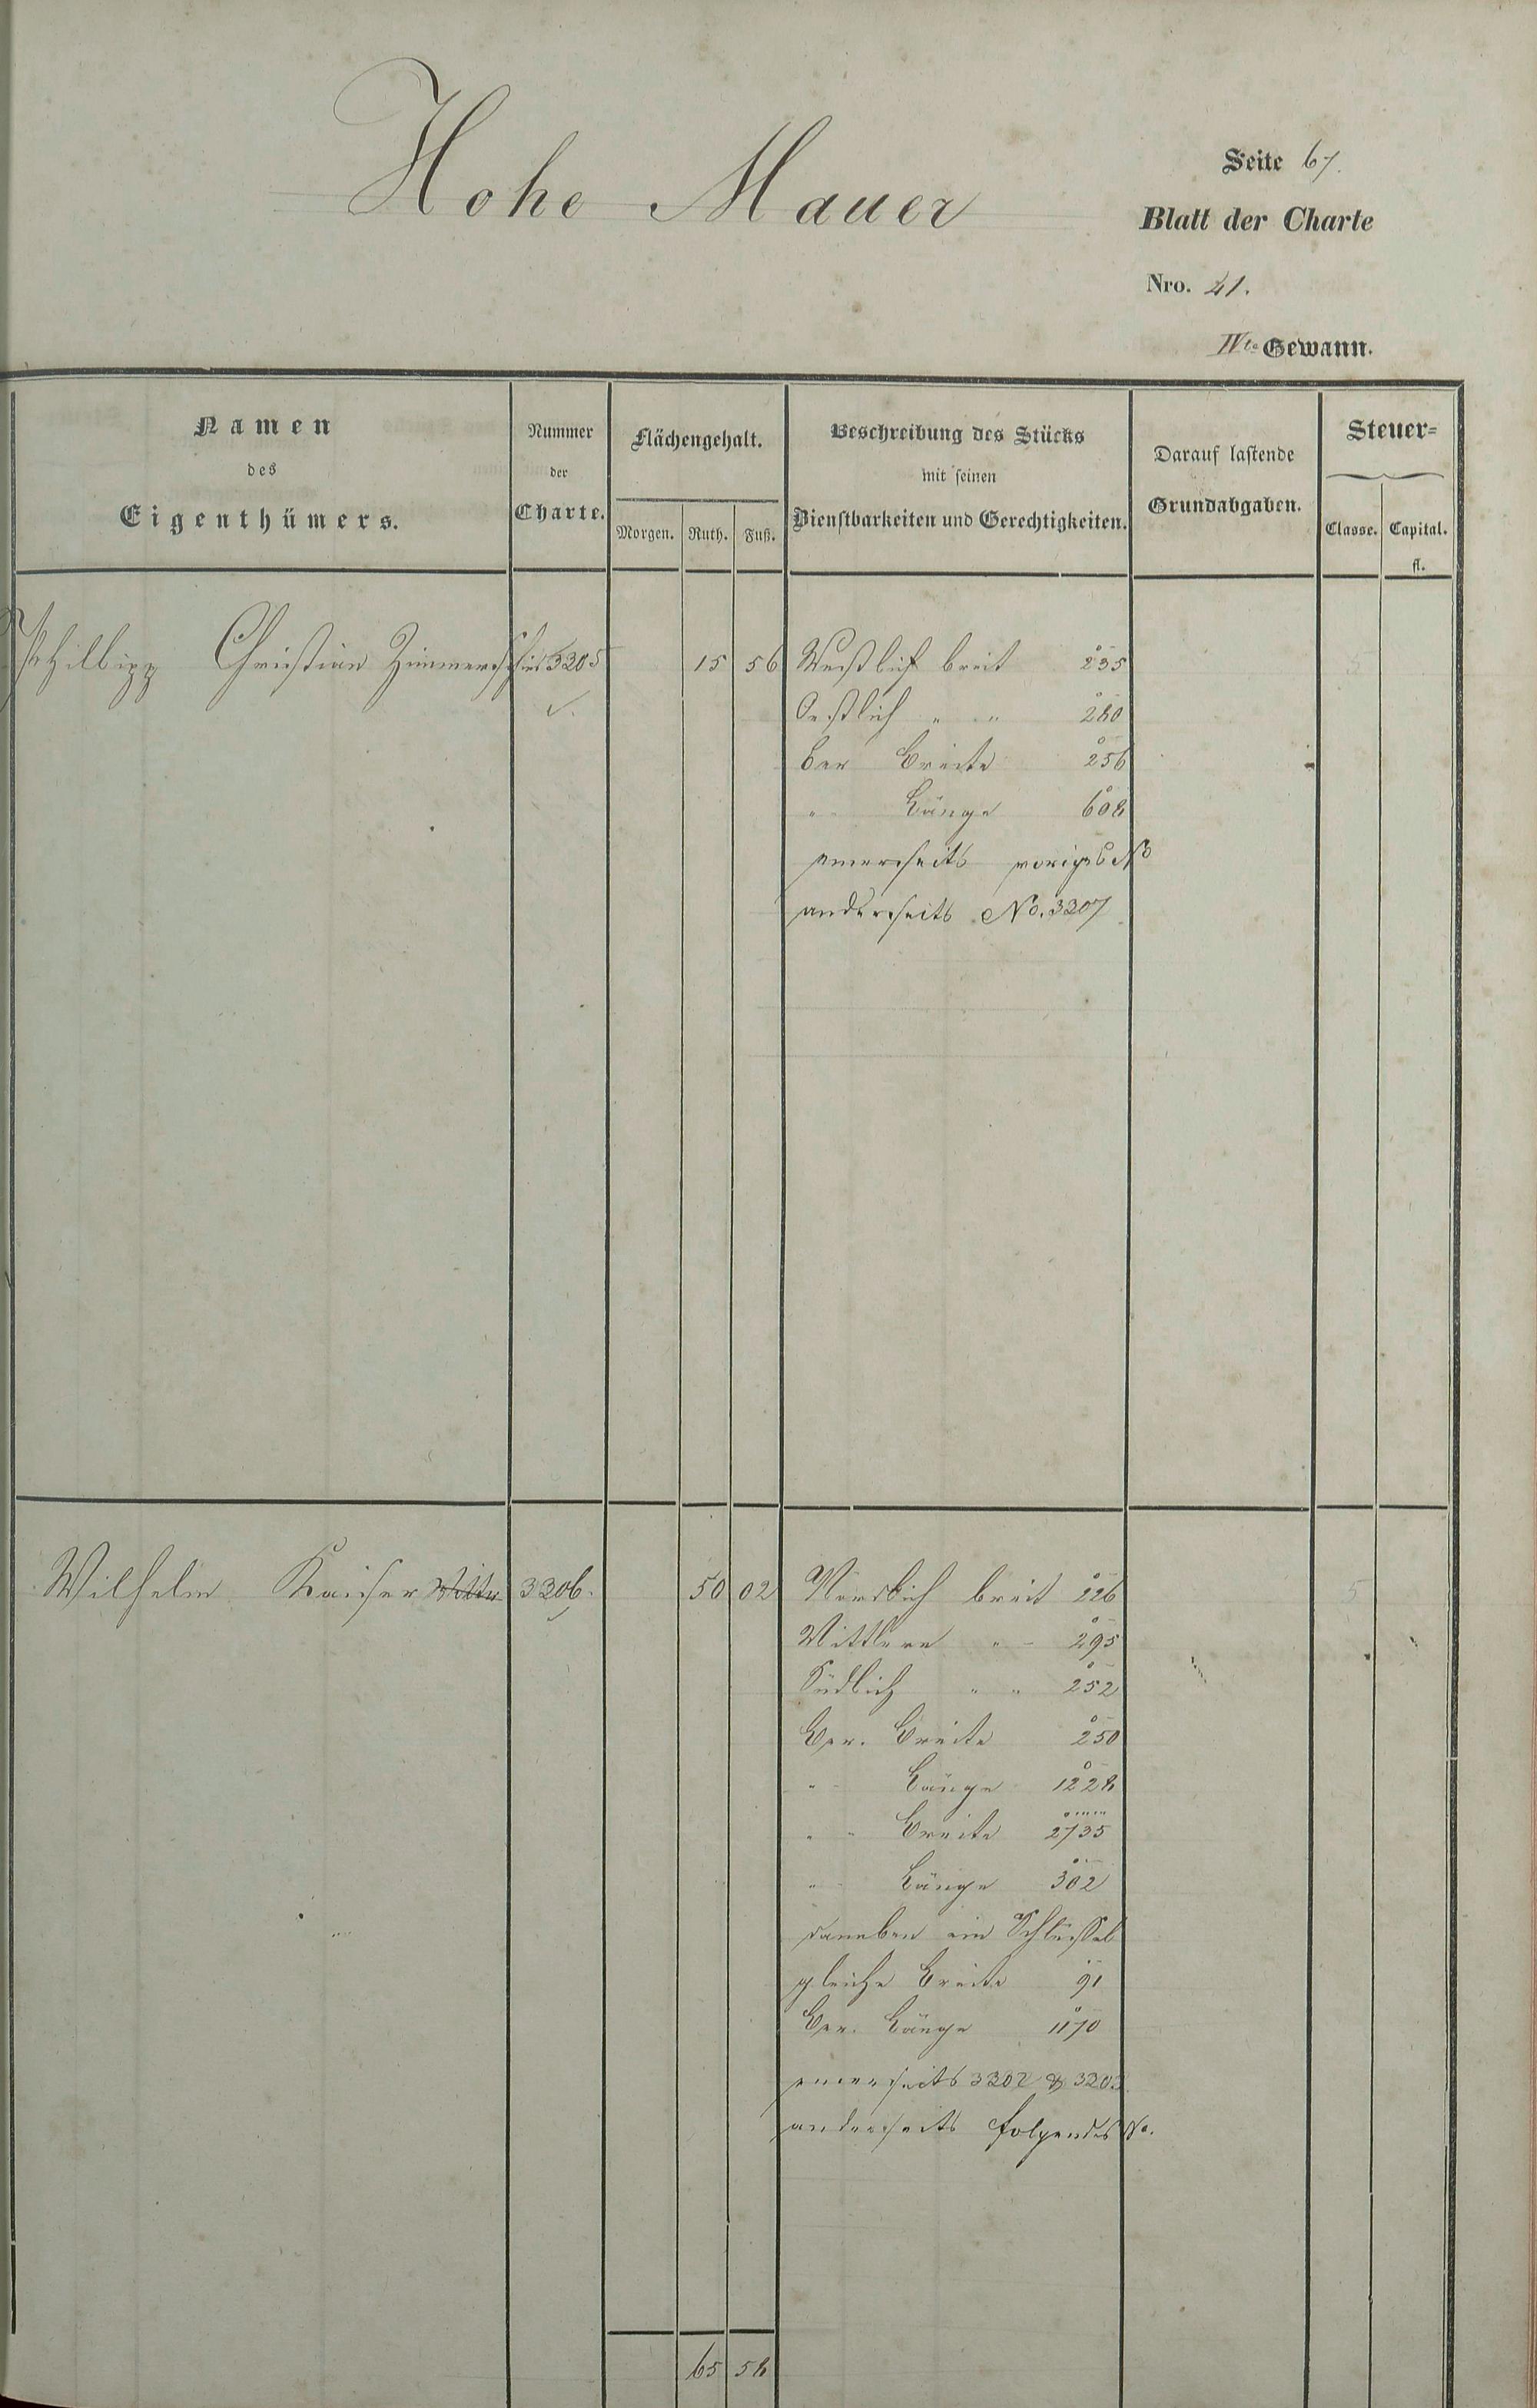 Hohe Mauer
Seite 67.
Blatt der Charte
Nro. 41.
IVte Gewann.
Namen
des
Eigenthümers.
Nummer
der
Charte.
Flächengehalt.
Morgen. Ruth. Fuß.
Beschreibung des Stücks
mit seinen
Dienstbarkeiten und Gerechtigkeiten.
Darauf lastende
Grundabgaben.
Steuer-
Classe. Capital.
fl.
Philipp Christian 3205 15 56 Westlich breit 235 5
Oestlich " " 280
ber Breite 256
" Länge 608
einerseits voriges No
anderseits No. 3207
Wilhelm Kaiser 3206. 50 02 Nördlich breit 226 5
Mittlere " 295
Südlich " " 252
Ber. Breite 250
" Länge 1228
" Breite 2735
" Länge 302
daneben ein Schlüssel
gleiche Breite 91
Ber. Länge 1170
einerseits 3202 & 3203
anderseits folgendes No.
65 58